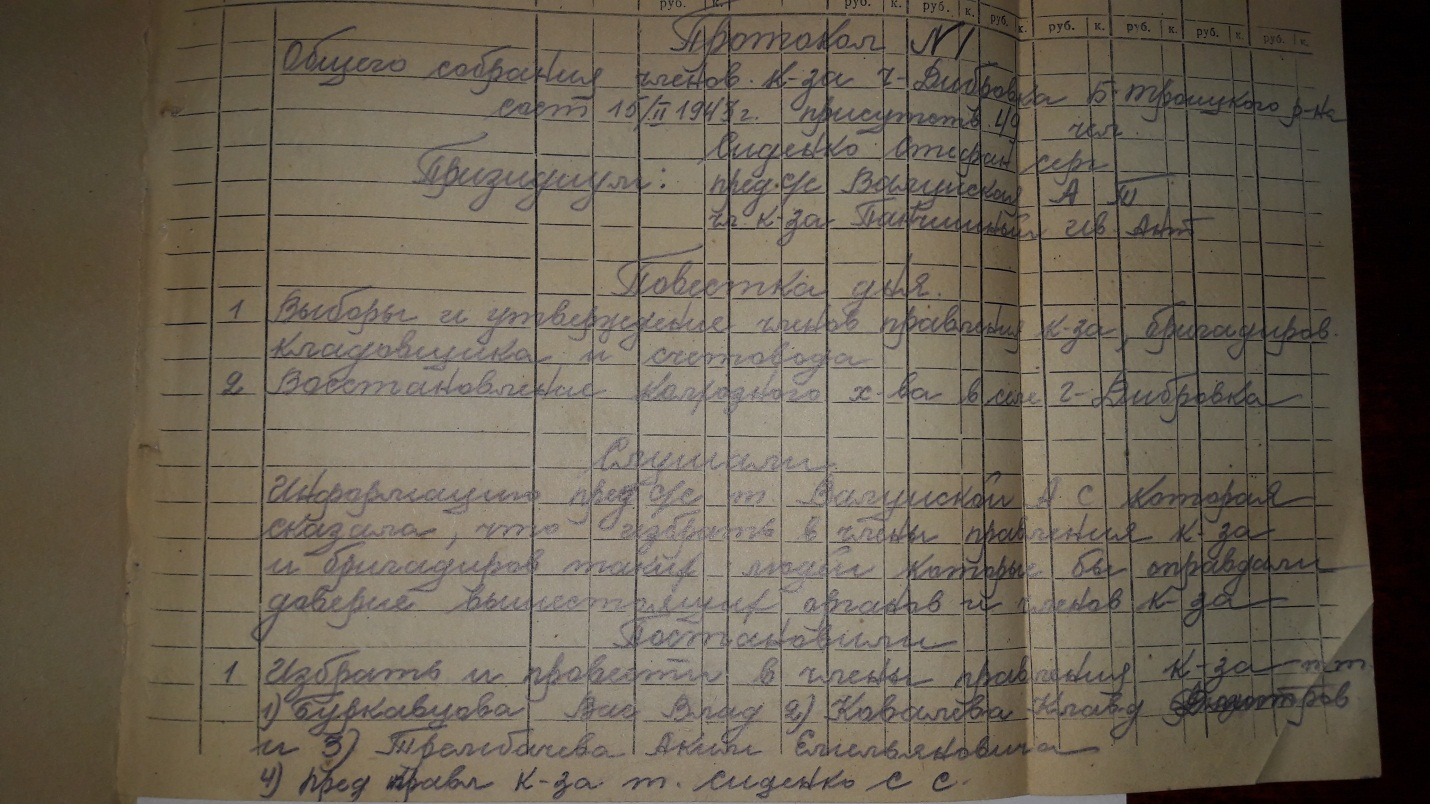 руб. к. руб. к. руб. к. руб. к. руб. к. руб. к. руб. к. руб. к.
Протокол N 1
Общего собрания членов к-за Г-Дибровка Б-Троицкого р-на
сост 15/II 1943 г. присутств. 49 чел.
Сиденко Стефан серг
Призидиум: пред. с/с Валуйская А
чл. к-за ив. Ант
Повестка дня.
1 Выборы и утверждение членов правления к-за, бригадиров.
кладовщика и счетовода
2 Восстановление колхозного х-ва в селе Г-Дибровка
Слушали
Информацию пред с/с т. Валуйской А С которая
сказала, что избрать в члены правления к-за
и бригадиров таких людей которые бы оправдали
доверие вышестоящих органов и членов к-за
Постановили
1 Избрать и провести в члены правления к-за т.т.
1) Вас Влад 2) Ковалева Клавд
и 3) Трембачева Аким Емельяновича
4) пред правл к-за т. Сиденко С С.